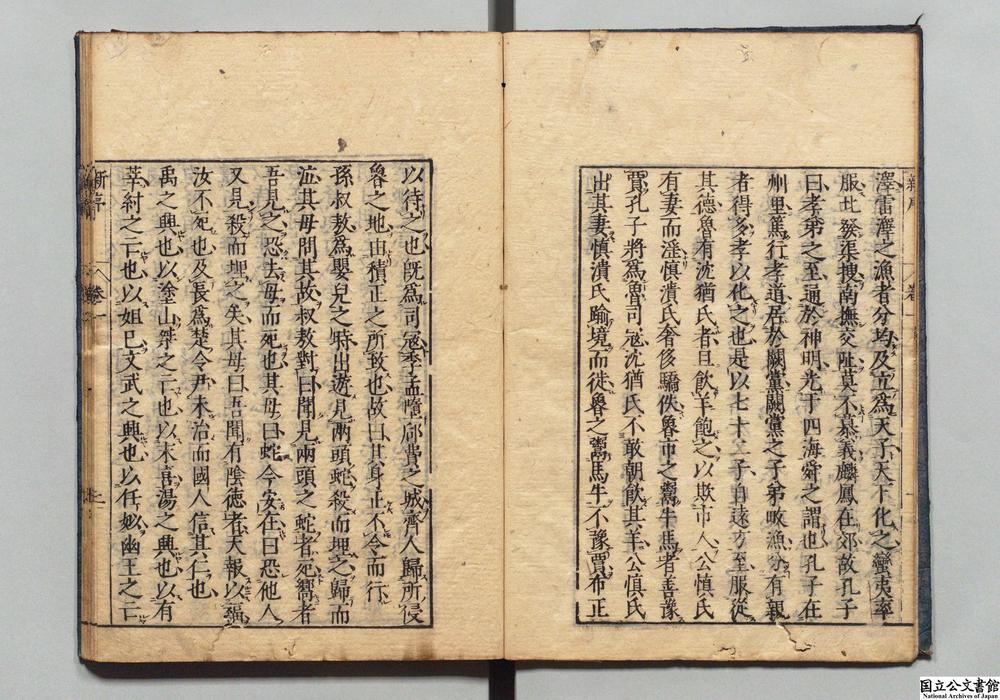 新序
卷一
澤雷澤之漁者分均及立爲天子天下化之蠻夷率
服北發渠搜南撫交阯莫不慕義麟鳳在郊故孔子
曰孝弟之至通於神明光于四海舜之謂也孔子在
州里篤行孝道居於闕黨闕黨之子弟畋漁分有親
者得多孝以化之也是以七十二子自遠方至服從
其德魯有沈猶氏者旦飲羊飽之以欺市人公愼氏
有妻而淫愼潰氏奢侈驕佚魯市之鬻牛馬者善豫
賈孔子將爲魯司寇沈猶氏不敢朝飲其羊公愼氏
出其妻愼潰氏踰境而徙魯之鬻馬牛不豫賈布正
以待之也旣爲司寇季孟墮郈費之城齊人歸所侵
魯之地由積正之所致也故曰其身正不令而行
孫叔敖爲嬰兒之時出遊見兩頭蛇殺而埋之歸而
泣其母問其故叔敖對曰聞見兩頭之蛇者死嚮者
吾見之恐去母而死也其母曰蛇今安在曰恐他人
又見殺而埋之矣其母曰吾聞有陰德者天報以福
汝不死也及長爲楚令尹未治而國人信其仁也
禹之興也以塗山桀之亡也以末喜湯之興也以有
莘紂之亡也以妲己文武之興也以任姒幽王之亡
新序
卷一
國立公文書館
National Archives of Japan